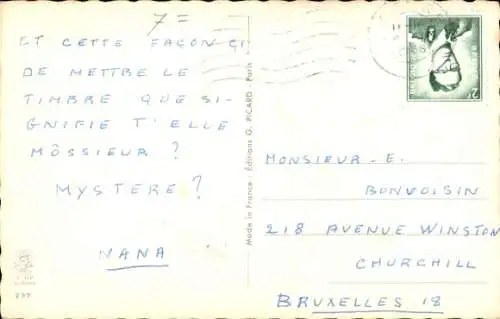 7=
ET CETTE FACON-CI
DE METTRE LE
TIMBRE QUE SI-
GNIFIE T'ELLE
MÔSSIEUR ?
MYSTERE ?
NANA
Made in France - Éditions G. PICARD - Paris
MONSIEUR - E.
BONVOISIN
218 AVENUE WINSTON
CHURCHILL
BRUXELLES 18